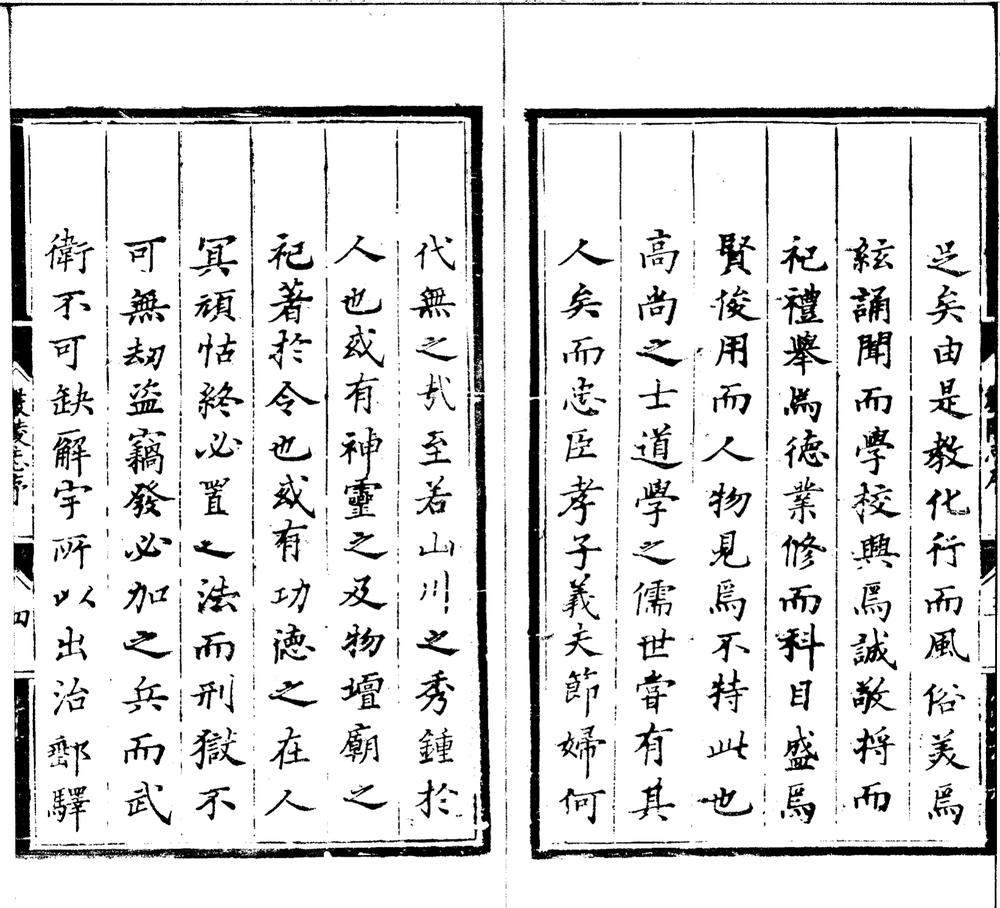 足矣由是教化行而風俗美焉
絃誦聞而學校興焉誠敬將而
祀禮舉焉德業修而科目盛焉
賢俊用而人物見焉不特此也
高尚之士道學之儒世嘗有其
人矣而忠臣孝子義夫節婦何
代無之哉至若山川之秀鍾於
人也或有神靈之及物壇廟之
祀著於令也或有功德之在人
冥頑怙終必置之法而刑獄不
可無劫盜竊發必加之兵而武
衛不可缺解宇所以出治郵驛
志序
四